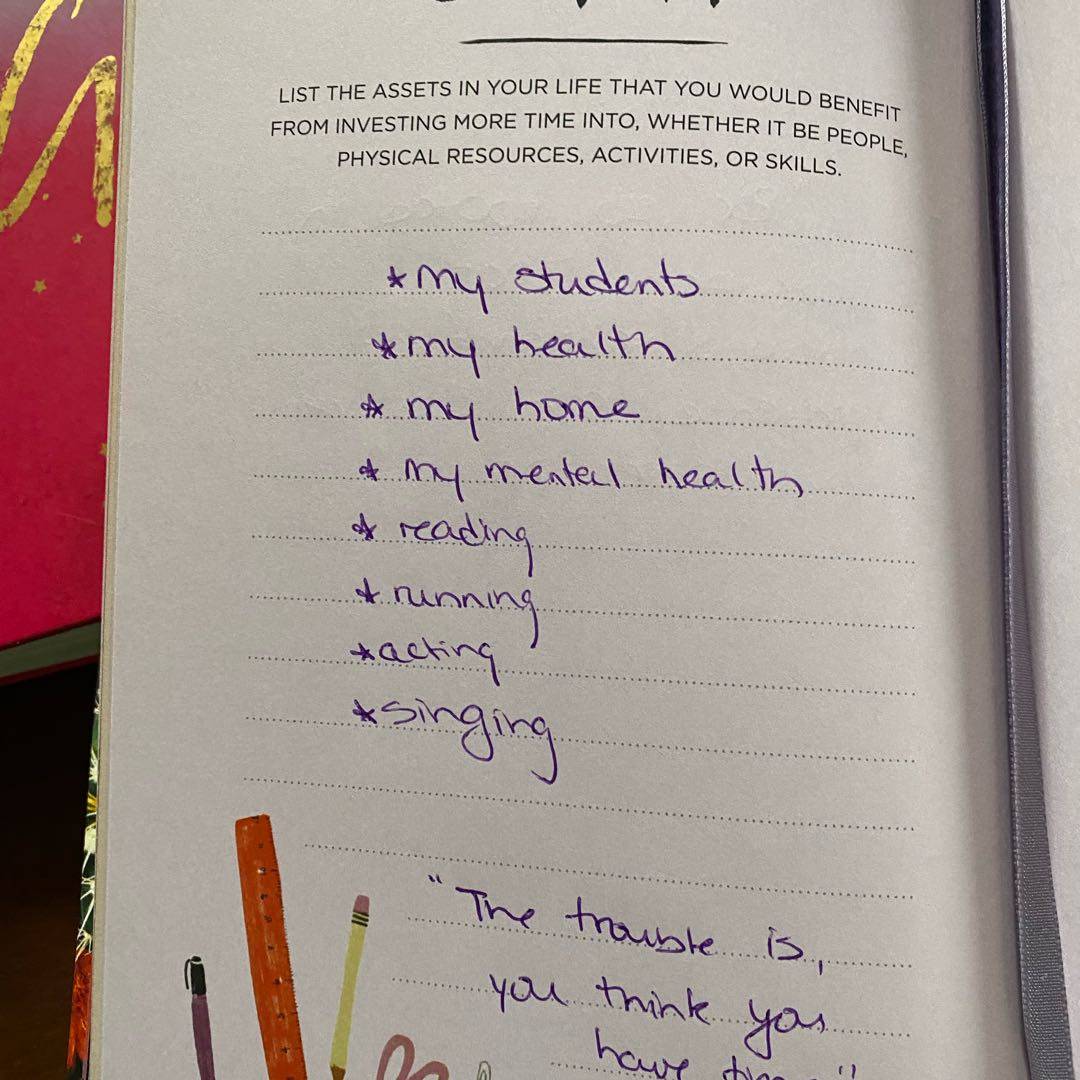 LIST THE ASSETS IN YOUR LIFE THAT YOU WOULD BENEFIT
FROM INVESTING MORE TIME INTO, WHETHER IT BE PEOPLE,
PHYSICAL RESOURCES, ACTIVITIES, OR SKILLS.
*my students
*my health
* my home
* my mental health
* reading
* running
*acting
*singing
"The trouble is,
you think you
have time"